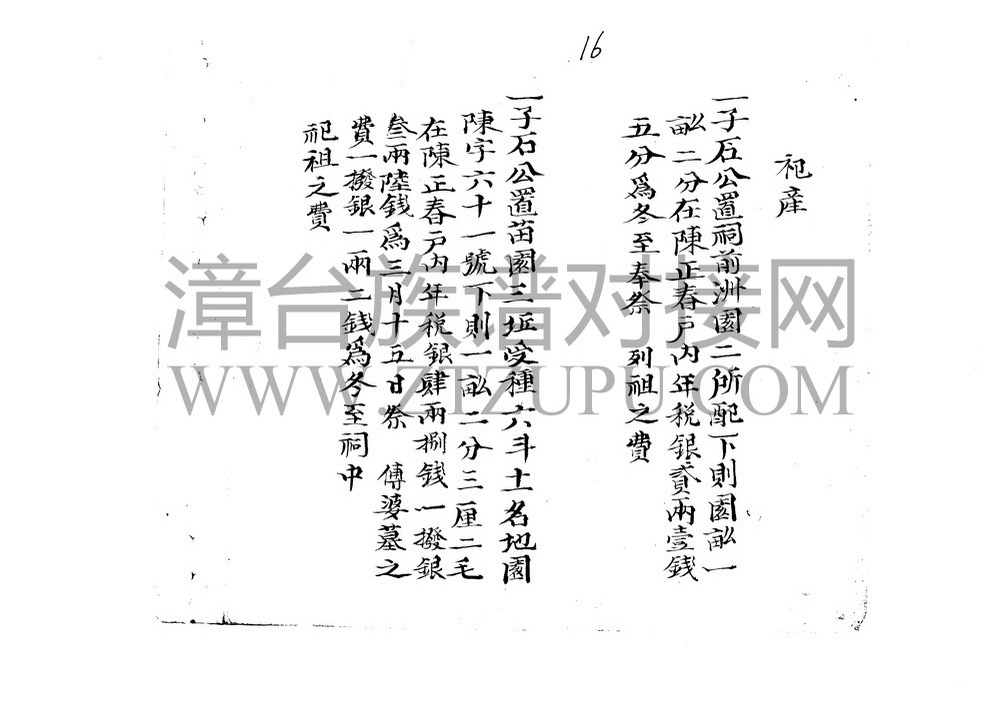 16
祀產
一子石公置祠前洲園二所配下則園畝一
畝二分在陳正春户内年税銀貳兩壹錢
五分爲冬至奉祭 列祖之費
一子石公置苗園三坵受種六斗土名地園
陳字六十一號下則一畝二分三厘二毛
在陳正春户内年税銀肆兩捌錢一撥銀
叁兩陸錢爲三月十五日祭 傅婆墓之
費一撥銀一兩二錢爲冬至祠中
祀祖之費
漳台族谱对接网
WWW.ZTZUPU.COM